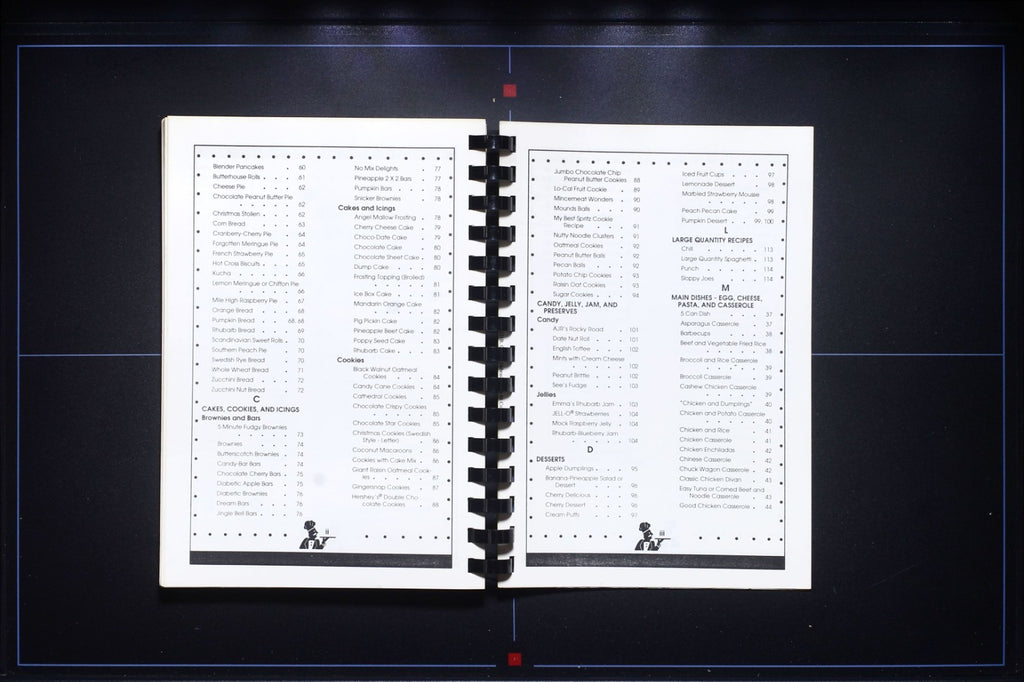 Blender Pancakes . . . 60
Butterhouse Rolls . . . 61
Cheese Pie . . . . 62
Chocolate Peanut Butter Pie
. . . . . 62
Christmas Stollen . . . 62
Corn Bread . . . . 63
Cranberry-Cherry Pie . . 64
Forgotten Meringue Pie . . 64
French Strawberry Pie . . 65
Hot Cross Biscuits . . . 65
Kucha . . . . . 66
Lemon Meringue or Chiffon Pie
. . . . . 66
Mile High Raspberry Pie . . 67
Orange Bread . . . 68
Pumpkin Bread . . . 68, 69
Rhubarb Bread . . . 69
Scandinavian Sweet Rolls . . 70
Southern Peach Pie . . 70
Swedish Rye Bread . . 70
Whole Wheat Bread . . 71
Zucchini Bread . . . 72
Zucchini Nut Bread . . 72
C
CAKES, COOKIES, AND ICINGS
Brownies and Bars
5 Minute Fudgy Brownies
. . . . . 73
Brownies . . . . 74
Butterscotch Brownies . . 74
Candy-Bar Bars . . . 74
Chocolate Cherry Bars . . 75
Diabetic Apple Bars . . 75
Diabetic Brownies . . 76
Dream Bars . . . . 76
Jingle Bell Bars . . . 76
No Mix Delights . . . 77
Pineapple 2 X 2 Bars . . 77
Pumpkin Bars . . . 78
Snicker Brownies . . . 78
Cakes and Icings
Angel Mallow Frosting . . 78
Cherry Cheese Cake . . 79
Choco-Date Cake . . 79
Chocolate Cake . . . 80
Chocolate Sheet Cake . . 80
Dump Cake . . . . 80
Frosting Topping (Broiled)
. . . . . 81
Ice Box Cake . . . . 81
Mandarin Orange Cake
. . . . . 82
Pig Pickin Cake . . . 82
Pineapple Beet Cake . . 82
Poppy Seed Cake . . . 83
Rhubarb Cake . . . 83
Cookies
Black Walnut Oatmeal
Cookies . . . . 84
Candy Cane Cookies . . 84
Cathedral Cookies . . 85
Chocolate Crispy Cookies
. . . . . 85
Chocolate Star Cookies . 85
Christmas Cookies (Swedish
Style - Letter) . . . 86
Coconut Macaroons . . 86
Cookies with Cake Mix . . 86
Giant Raisin Oatmeal Cook-
ies . . . . . 87
Gingersnap Cookies . . 87
Hershey's® Double Cho-
colate Cookies . . . 88
Jumbo Chocolate Chip
Peanut Butter Cookies 88
Lo-Cal Fruit Cookie . . 89
Mincemeat Wonders . . 90
Mounds Balls . . . 90
My Best Spritz Cookie
Recipe . . . . 91
Nutty Noodle Clusters . . 91
Oatmeal Cookies . . . 92
Peanut Butter Balls . . 92
Pecan Balls . . . . 92
Potato Chip Cookies . . 93
Raisin Oat Cookies . . 93
Sugar Cookies . . . 94
CANDY, JELLY, JAM, AND
PRESERVES
Candy
AJR's Rocky Road . . . 101
Date Nut Roll . . . 101
English Toffee . . . 102
Mints with Cream Cheese
. . . . . 102
Peanut Brittle . . . 102
See's Fudge . . . . 103
Jellies
Emma's Rhubarb Jam . . 103
JELL-O® Strawberries . . 104
Mock Raspberry Jelly . . 104
Rhubarb-Blueberry Jam
. . . . . 104
D
DESSERTS
Apple Dumplings . . . 95
Banana-Pineapple Salad or
Dessert . . . . 96
Cherry Delicious . . . 96
Cherry Dessert . . . 96
Cream Puffs . . . . 97
Iced Fruit Cups . . . 97
Lemonade Dessert . . 98
Marbled Strawberry Mousse
. . . . . 98
Peach Pecan Cake . . 99
Pumpkin Dessert . . 99, 100
L
LARGE QUANTITY RECIPES
Chili . . . . . 113
Large Quantity Spaghetti . 113
Punch . . . . . 114
Sloppy Joes . . . . 114
M
MAIN DISHES - EGG, CHEESE,
PASTA, AND CASSEROLE
5 Can Dish . . . . 37
Asparagus Casserole . . 37
Barbecups . . . . 38
Beef and Vegetable Fried Rice
. . . . . 38
Broccoli and Rice Casserole
. . . . . 39
Broccoli Casserole . . . 39
Cashew Chicken Casserole
. . . . . 39
"Chicken and Dumplings" 40
Chicken and Potato Casserole
. . . . . 40
Chicken and Rice . . . 41
Chicken Casserole . . 41
Chicken Enchiladas . . 42
Chinese Casserole . . 42
Chuck Wagon Casserole . 42
Classic Chicken Divan . . 43
Easy Tuna or Corned Beef and
Noodle Casserole . . 43
Good Chicken Casserole . 44